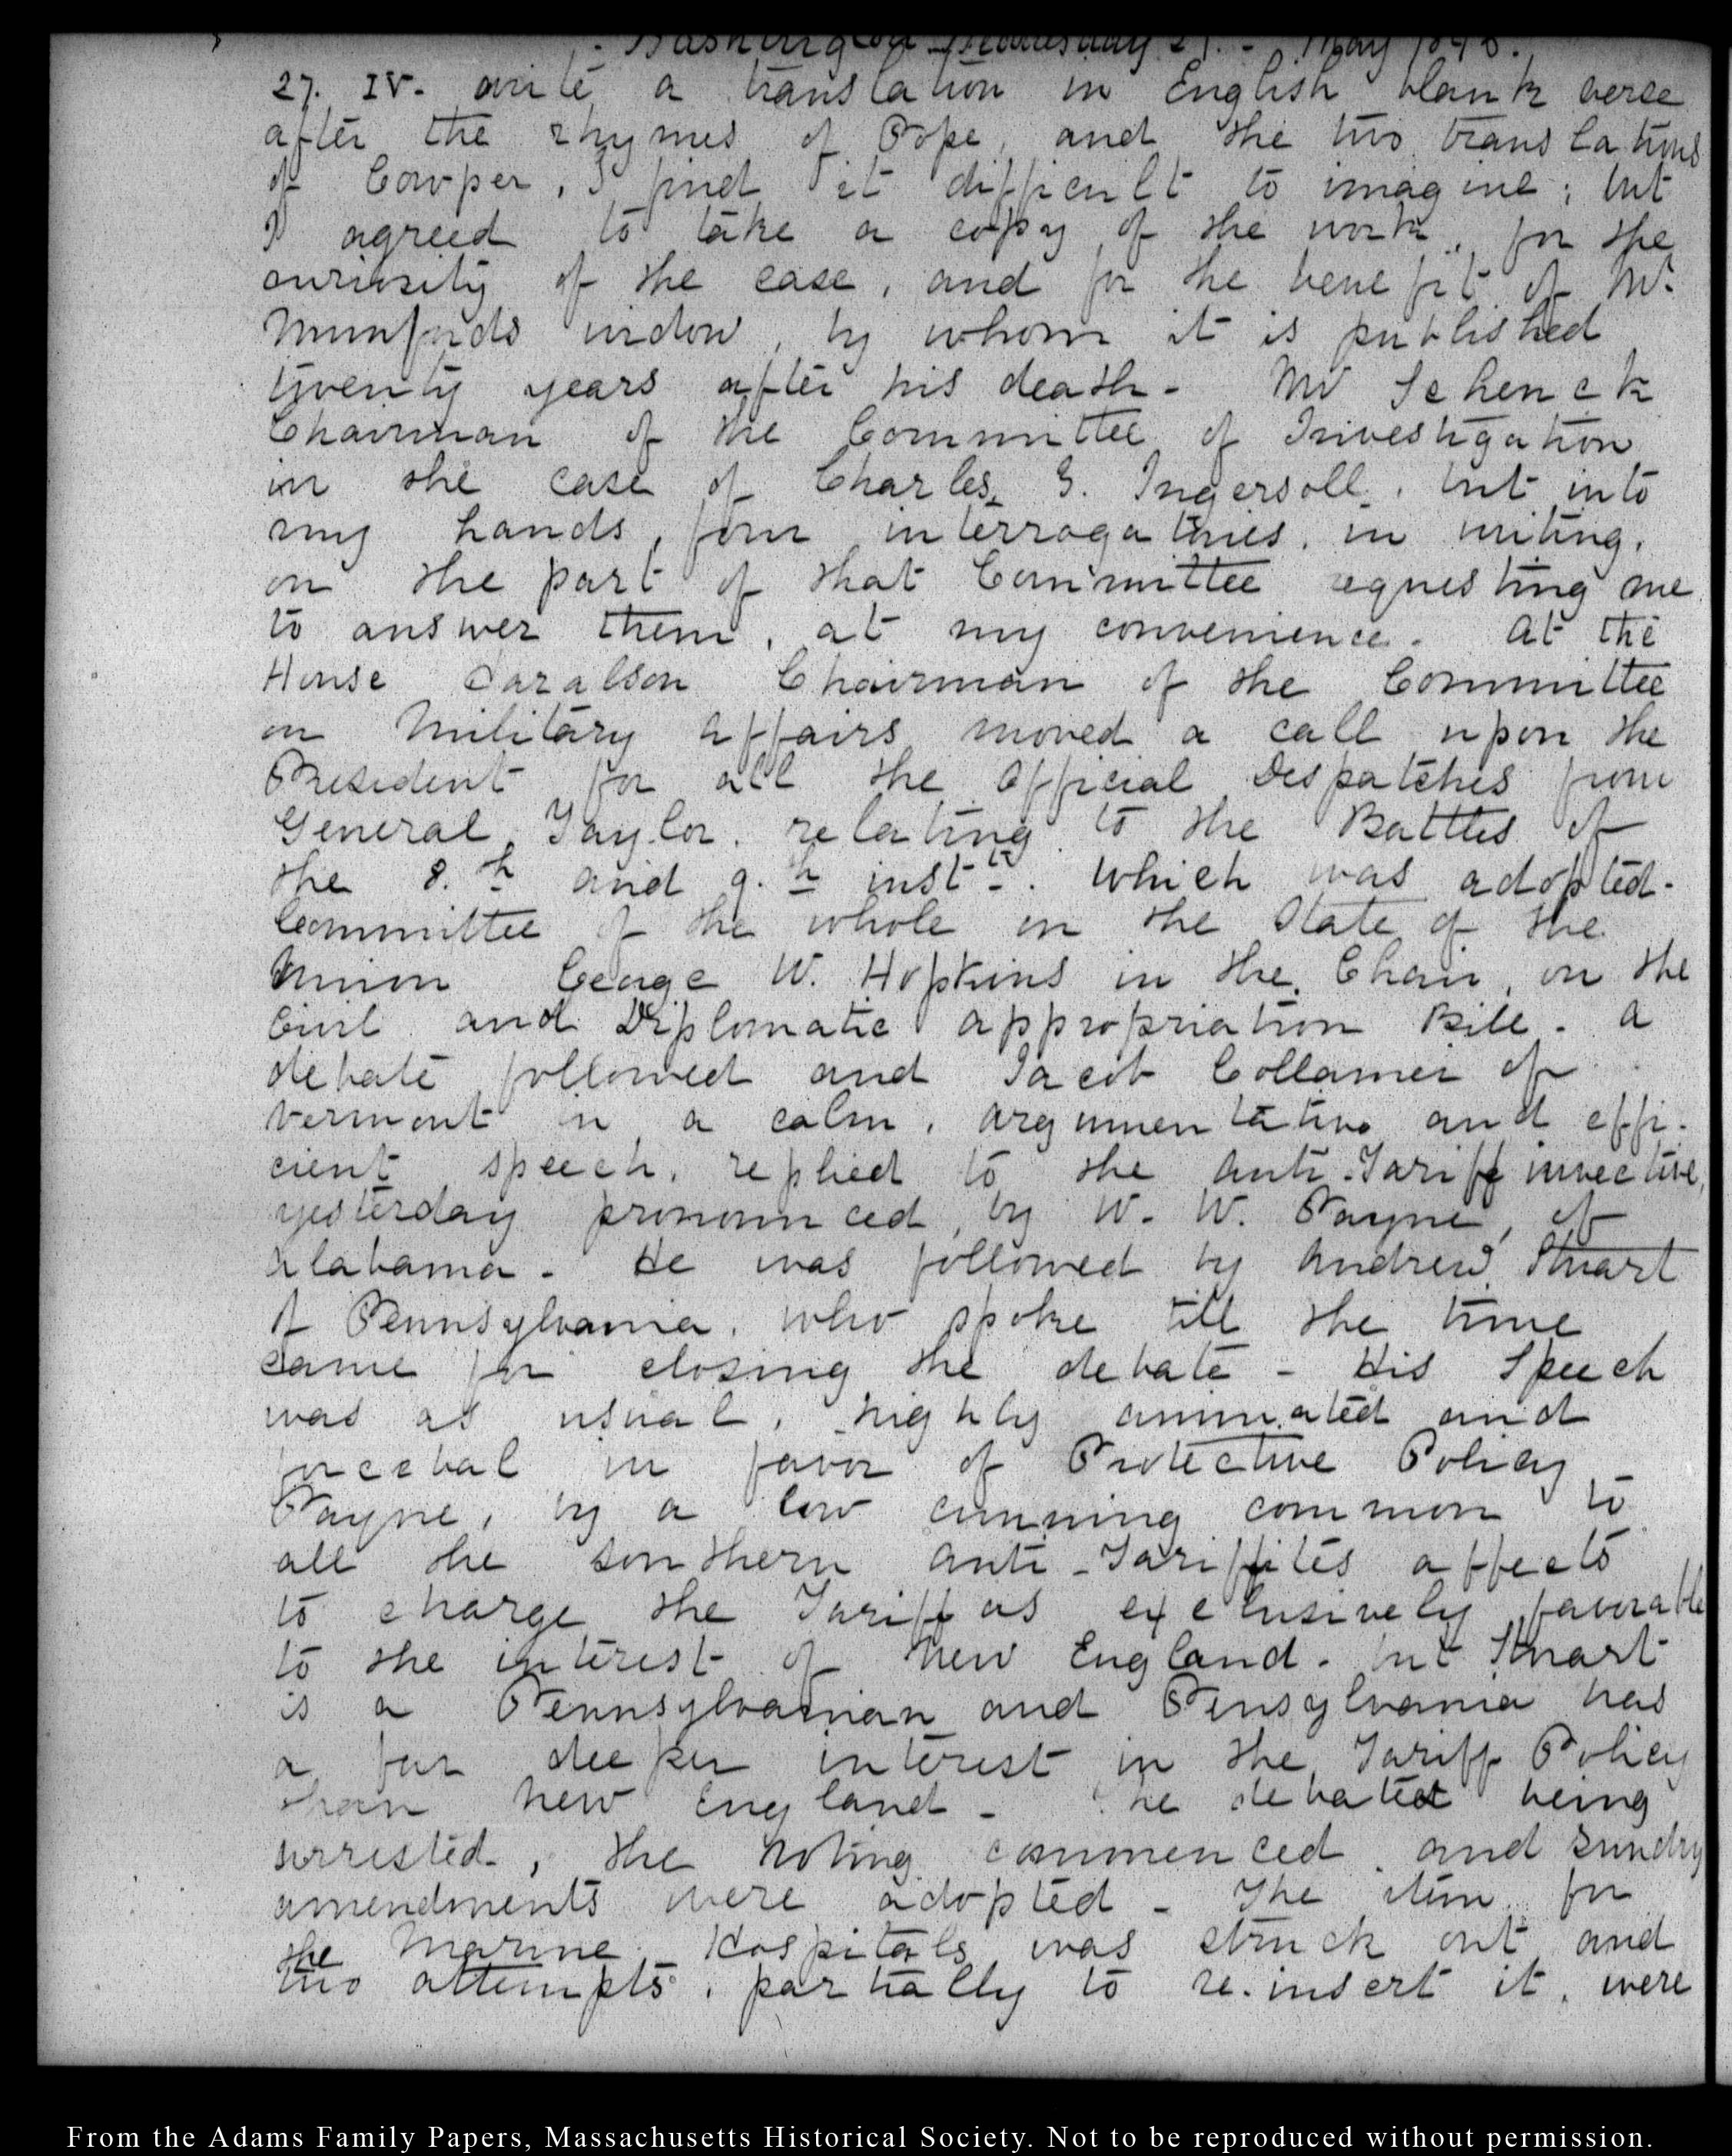 Washington Wednesday 27. - May 1846.
27. IV. write a translation in English blank verse
after the rhymes of Pope, and the two translations
of Cowper, I find it difficult to imagine; but
I agreed to take a copy of the work, for the
curiosity of the case, and for the benefit of Mr.
Munfords widow, by whom it is published
twenty years after his death - Mr Schenck
Chairman of the Committee of Investigation
in the case of Charles J. Ingersoll, put into
my hands, four interrogatories, in writing,
on the part of that Committee requesting me
to answer them, at my convenience. At the
House Haralson Chairman of the Committee
on Military Affairs moved a call upon the
President for all the Official Despatches from
General Taylor, relating to the Battles of
the 8.th and 9.th instt. which was adopted.
Committee of the whole on the State of the
Union George W. Hopkins in the Chair, on the
Civil and Diplomatic appropriation Bill. A
debate followed and Jacob Collamer of
Vermont in a calm, argumentative and effi-
cient speech, replied to the anti-Tariff invective,
yesterday pronounced, by W. W. Payne, of
Alabama - He was followed by Andrew Stuart
of Pennsylvania, who spoke till the time
came for closing the debate - His Speech
was as usual, highly animated and
forcebal in favor of Protective Policy -
Payne, by a low cunning common to
all the southern anti-Tariffites affects
to charge the Tariff as exclusively favorable
to the interest of New England. but Stuart
is a Pennsylvanian and Pensylvania has
a far deeper interest in the Tariff Policy
than New England - The debated being
arrested, the voting commenced, and sundry
amendments were adopted - The item for
the Marine Hospitals was struck out and
two attempts, partially to re-insert it, were
From the Adams Family Papers, Massachusetts Historical Society. Not to be reproduced without permission.